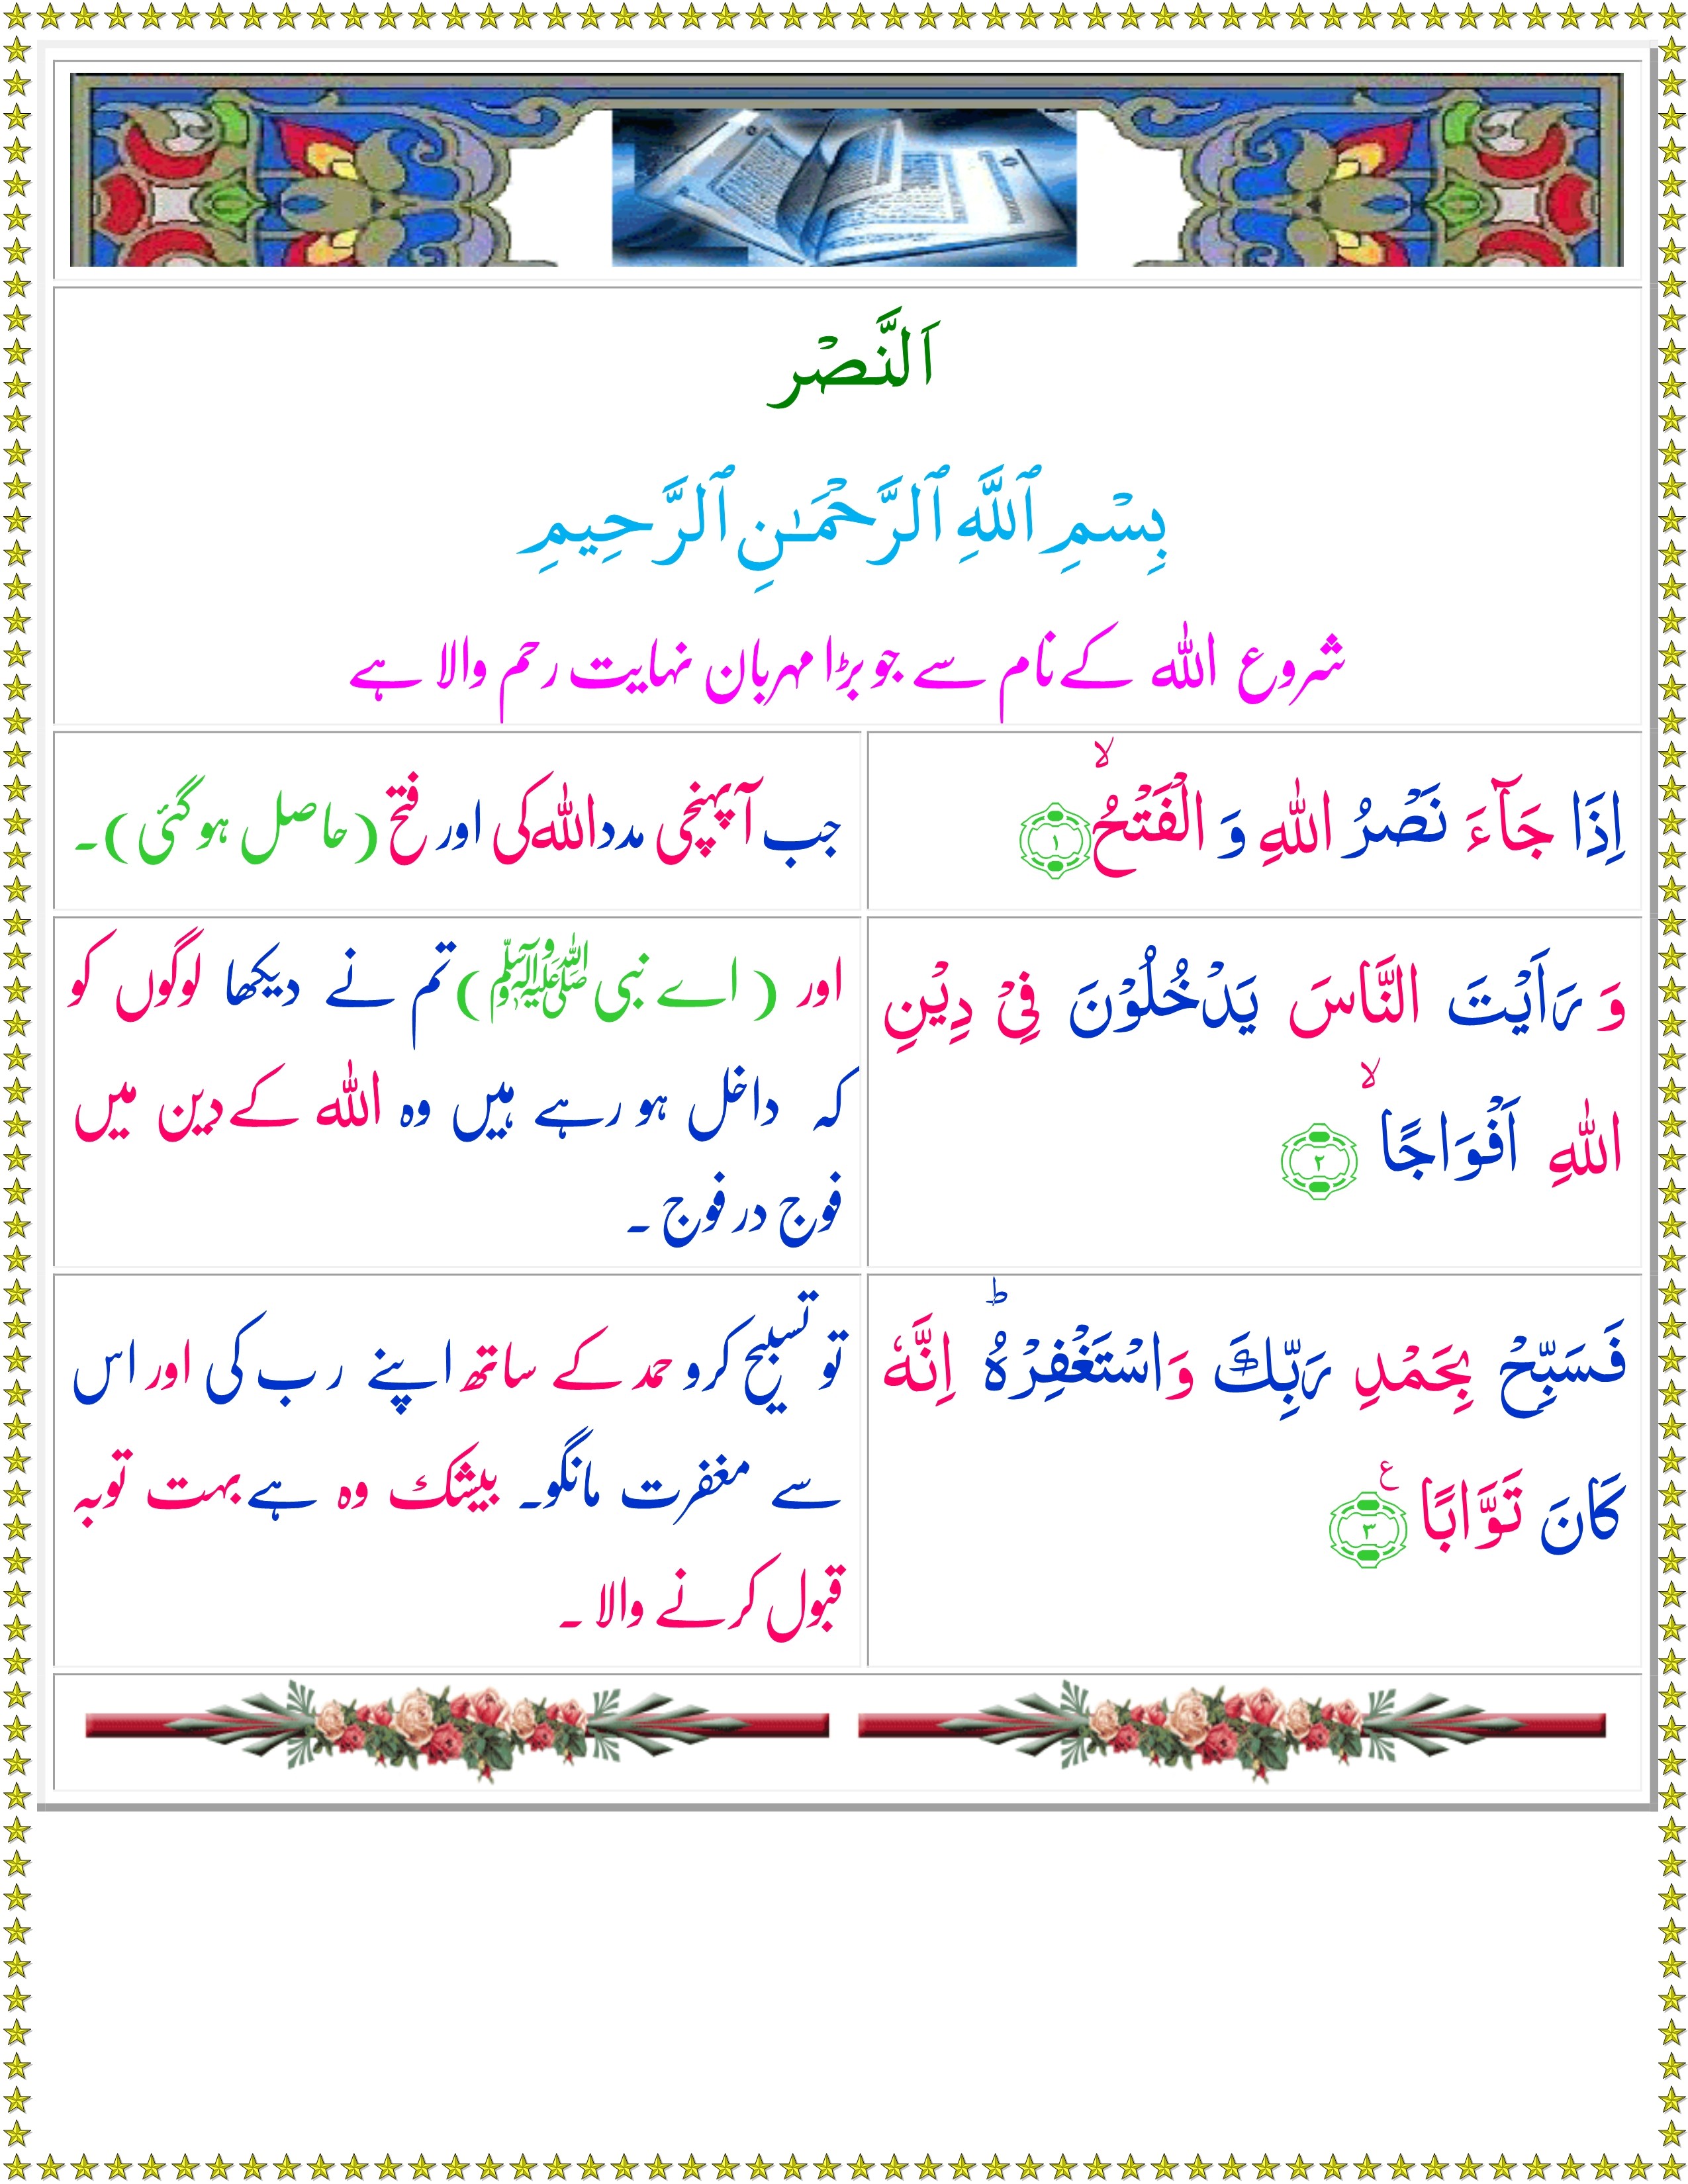 اَلنَّصْر
بِسْمِ ٱللَّهِ ٱلرَّحْمَـٰنِ ٱلرَّحِيمِ
شروع اللہ کے نام سے جو بڑا مہربان نہایت رحم والا ہے
اِذَا جَآءَ نَصْرُ اللّٰهِ وَ الْفَتْحُۙ ﴿۱﴾
جب آ پہنچی مدد اللہ کی اور فتح (حاصل ہوگئی)۔
وَ رَاَيْتَ النَّاسَ يَدْخُلُوْنَ فِىْ دِيْنِ
اللّٰهِ اَفْوَاجًا ۙ ﴿۲﴾
اور (اے نبی ﷺ) تم نے دیکھا لوگوں کو
کہ داخل ہو رہے ہیں وہ اللہ کے دین میں
فوج در فوج ۔
فَسَبِّحْ بِحَمْدِ رَبِّكَ وَاسْتَغْفِرْهُ ؕ اِنَّهٗ
كَانَ تَوَّابًا ع ﴿۳﴾
تو تسبیح کرو حمد کے ساتھ اپنے رب کی اور اس
سے مغفرت مانگو۔ بیشک وہ ہے بہت توبہ
قبول کرنے والا ۔